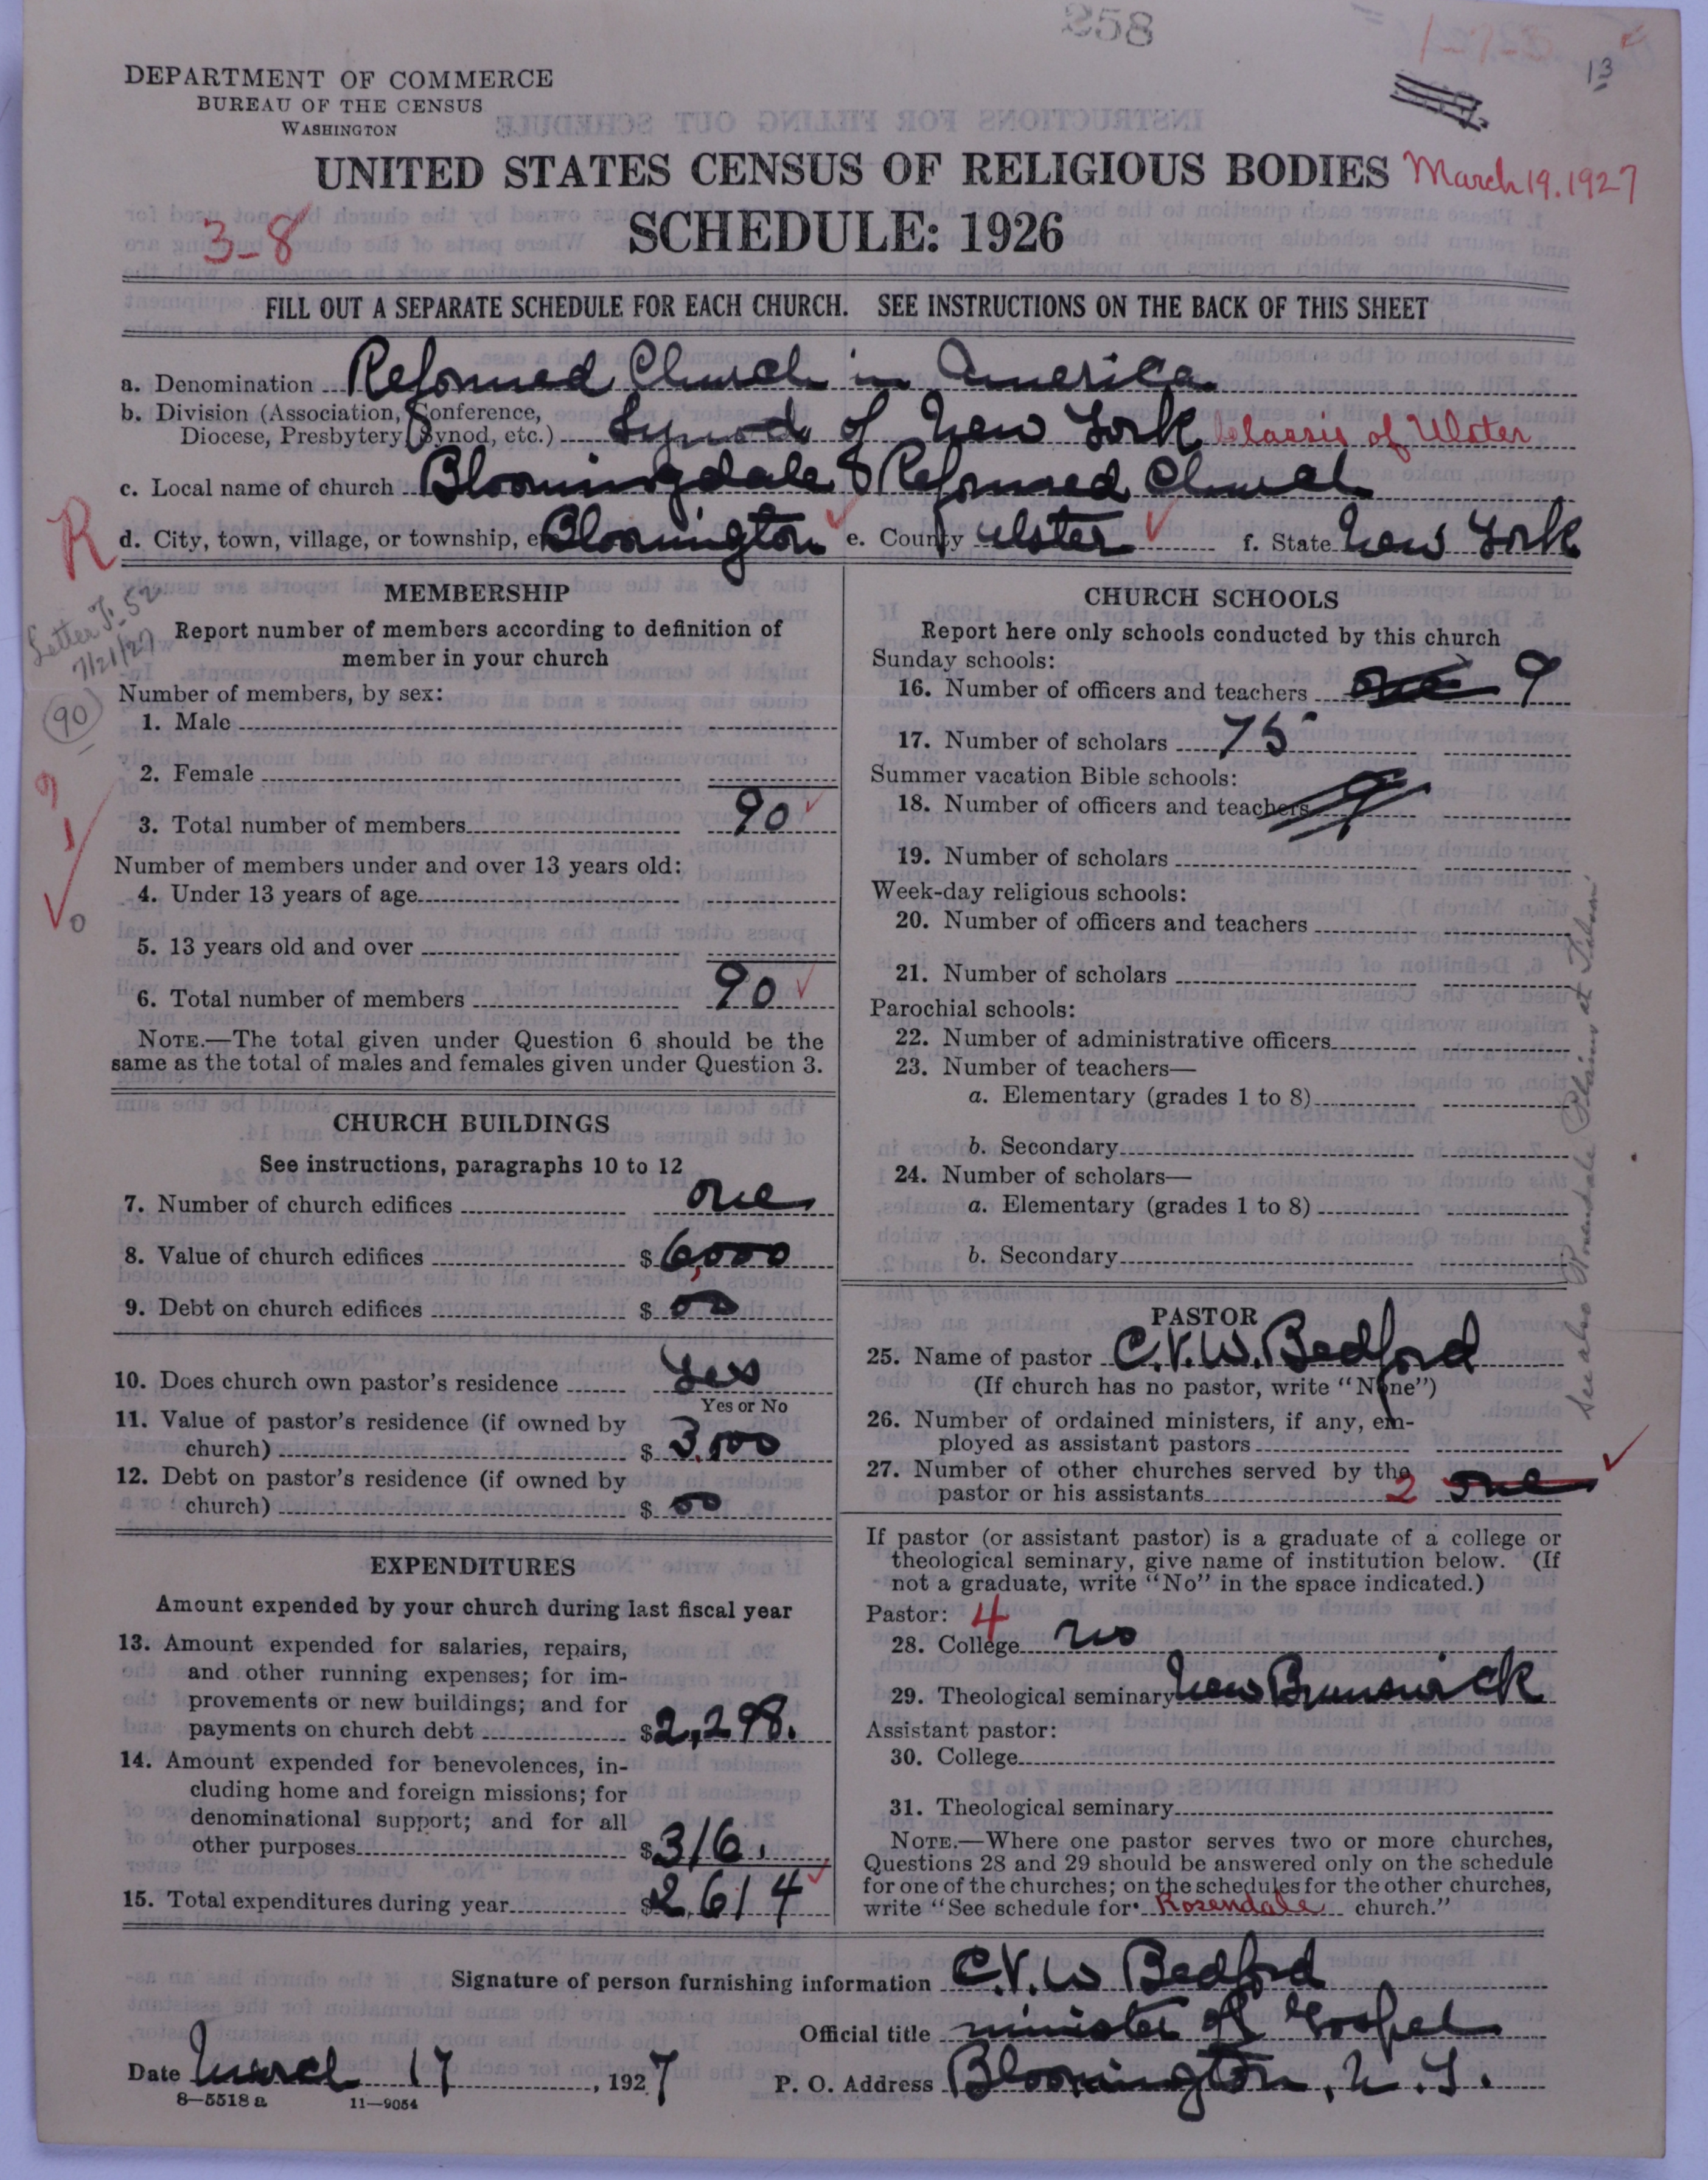 258
1-7-5
13
DEPARTMENT OF COMMERCE
BUREAU OF THE CENSUS
WASHINGTON
UNITED STATES CENSUS OF RELIGIOUS BODIES March 19. 1927
3-8 SCHEDULE: 1926
FILL OUT A SEPARATE SCHEDULE FOR EACH CHURCH. SEE INSTRUCTIONS ON THE BACK OF THIS SHEET
a. Denomination Reformed Church in America
b. Division (Association, Conference,
Diocese, Presbytery, Synod, etc.) Synod of New York Classis of Ulster
c. Local name of church Bloomingdale Reformed Church
R
d. City, town, village, or township, etc. Bloomington e. County Ulster f. State New York
Letter F. 52
7/21/27
90
MEMBERSHIP
Report number of members according to definition of
member in your church
Number of members, by sex:
1. Male
2. Female
3. Total number of members 90
Number of members under and over 13 years old:
4. Under 13 years of age
5. 13 years old and over
6. Total number of members 90
NOTE.—The total given under Question 6 should be the
same as the total of males and females given under Question 3.
CHURCH BUILDINGS
See instructions, paragraphs 10 to 12
7. Number of church edifices one
8. Value of church edifices $6,000
9. Debt on church edifices $ 00
10. Does church own pastor's residence Yes
Yes or No
11. Value of pastor's residence (if owned by
church) $ 3,000
12. Debt on pastor's residence (if owned by
church) $ 00
EXPENDITURES
Amount expended by your church during last fiscal year
13. Amount expended for salaries, repairs,
and other running expenses; for im-
provements or new buildings; and for
payments on church debt $2,298.
14. Amount expended for benevolences, in-
cluding home and foreign missions; for
denominational support; and for all
other purposes $316.
15. Total expenditures during year $2,614
CHURCH SCHOOLS
Report here only schools conducted by this church
Sunday schools:
16. Number of officers and teachers one 9
17. Number of scholars 75
Summer vacation Bible schools:
18. Number of officers and teachers 9
19. Number of scholars
Week-day religious schools:
20. Number of officers and teachers
21. Number of scholars
Parochial schools:
22. Number of administrative officers
23. Number of teachers—
a. Elementary (grades 1 to 8)
b. Secondary
24. Number of scholars—
a. Elementary (grades 1 to 8)
b. Secondary
See also Rosendale Plains at Tilson
PASTOR
25. Name of pastor C.V.W. Bedford
(If church has no pastor, write "None")
26. Number of ordained ministers, if any, em-
ployed as assistant pastors
27. Number of other churches served by the
pastor or his assistants 2 one
If pastor (or assistant pastor) is a graduate of a college or
theological seminary, give name of institution below. (If
not a graduate, write "No" in the space indicated.)
Pastor: 4
28. College no
29. Theological seminary New Brunswick
Assistant pastor:
30. College
31. Theological seminary
NOTE.—Where one pastor serves two or more churches,
Questions 28 and 29 should be answered only on the schedule
for one of the churches; on the schedules for the other churches,
write "See schedule for Rosendale church."
Signature of person furnishing information C.V.W Bedford
Official title minister of Gospel
Date March 17, 1927 P. O. Address Bloomington, N.Y.
8—5518 a 11—9054